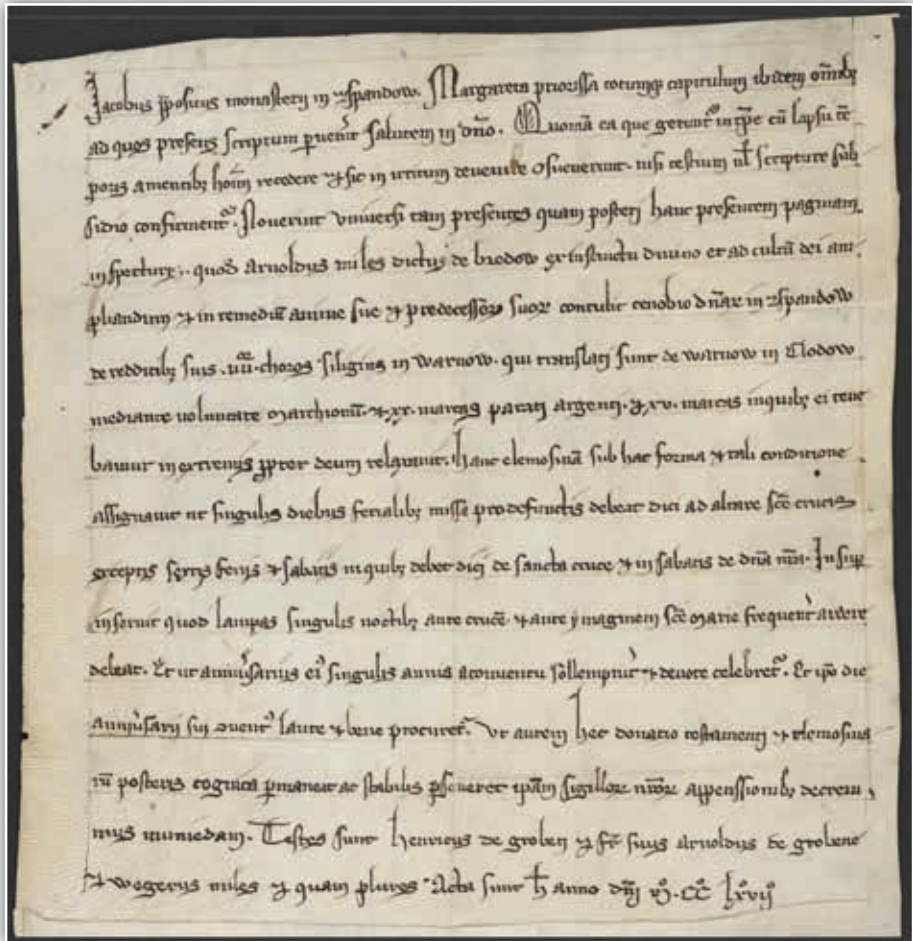 Jacobus p̄positus monasterij in zspandow. Margareta priorissa totumq; capitulum ibidem om̄ib;
ad quos presens scriptum puen̄it salutem in dn̄o. Quoniā ea que gerunt᷑ in tp̄e cū lapsu tē
poris a mentib; hoīm recedere ⁊ sic in irritum devenire ꝯsueverunt. nisi testium ul̄ scripture sub
sidio confirment᷑. Noverint universi tam presentes quam posteri hanc presentem paginam
inspecturi. quod Arnoldus miles dictus de bredow ex instinctu divino et ad cultū dei am
pliandum ⁊ in remediū anime sue ⁊ predecessoꝝ suoꝝ contulit cenobio dn̄aꝝ in zspandow
de redditib; suis .choros siliginis in warnow. qui translati sunt de warnow in Clodow
mediante voluntate Marchionū. ⁊ xx. marcas parati argenti. ⁊ xv. marcas in quib; ei tene
bantur in extremis ꝓpter deum relaxavit. hanc elemosinā sub hac forma ⁊ tali conditione
assignavit ut singulis diebus ferialib; missa pro defunctis debeat dici ad altare sc̄e crucis
exceptis sextis ferijs ⁊ sabatis in quib; debet dici de sancta cruce ⁊ in sabatis de dn̄a nr̄a. Insup̱
inseruit quod lampas singulis noctib; ante crucē ⁊ ante ymaginem sc̄e Marie frequent᷑ ardere
debeat. Et ut anniv̓sarius ei᷒ singulis annis a conventu sollempnit᷑ ⁊ devote celebret᷑. Et ip̄o die
anniv̓sarij sui ꝯvent᷒ laute ⁊ bene procuret᷑. Ut autem hec donatio testamenti ⁊ elemosina
posteris cognita ꝑmaneat ac stabilis ꝑseveret ip̄am sigilloꝝ nr̄oꝝ appenssionib; decrevi
mus muniēdam. Testes sunt henricus de groben ⁊ fr̄ suus arnoldus de grobene
⁊ wogerus miles ⁊ quam plures. Acta sunt h̄ anno dn̄i m̊. cc̊ lx̊vij̊